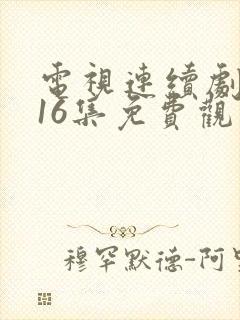 電視連續劇
16集免費觀
穆罕默德-阿